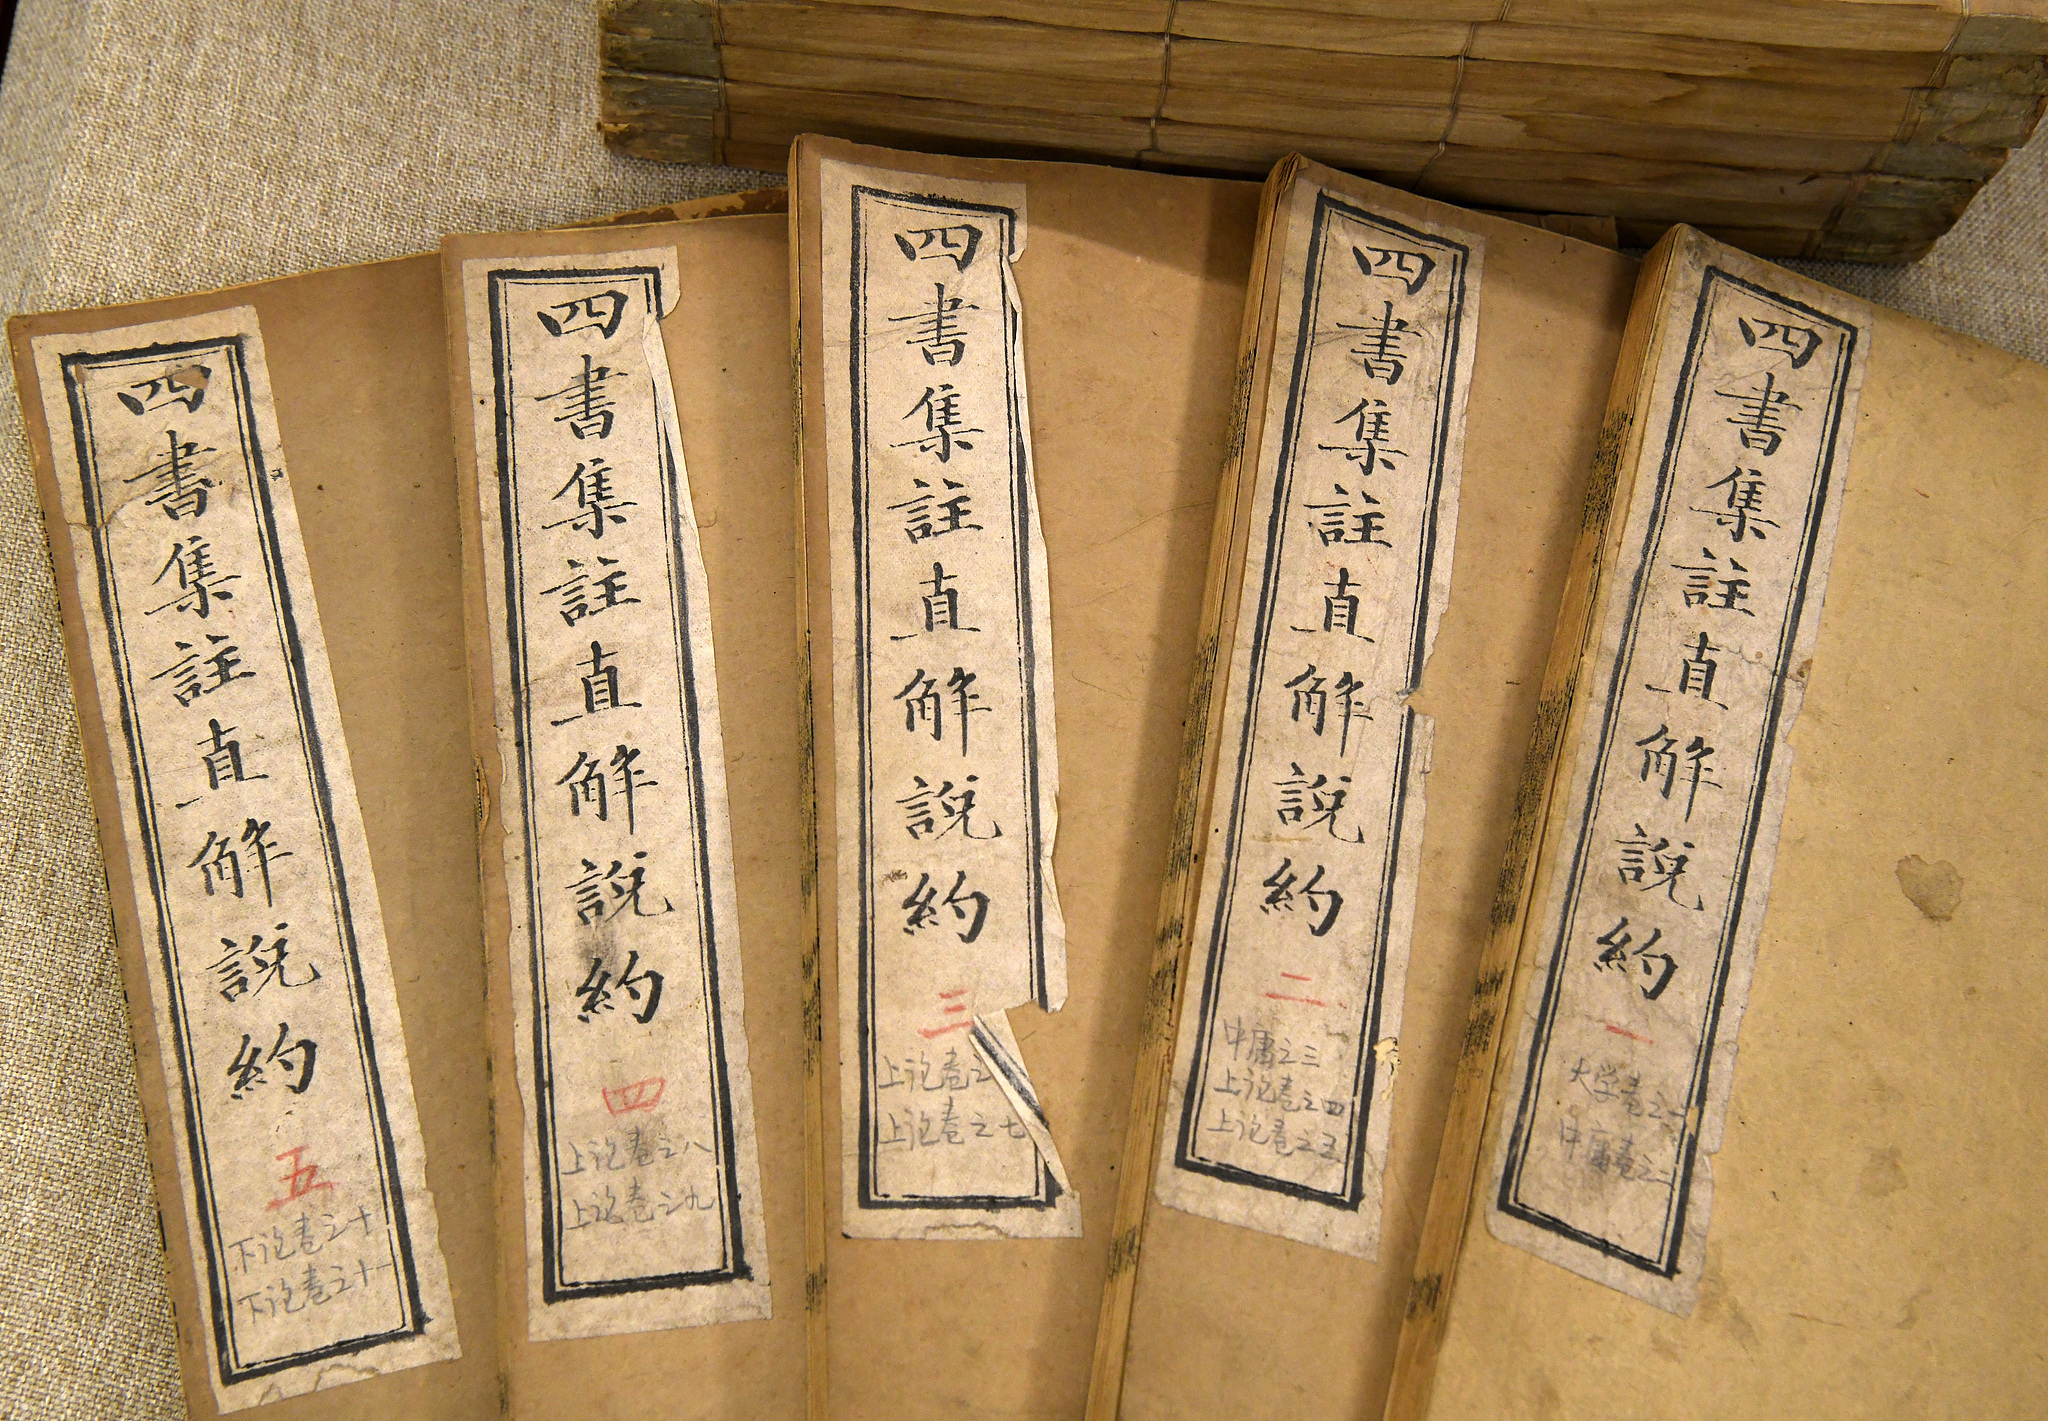 四書集註直解說約
一
大学卷之一
中庸卷之二
四書集註直解說約
二
中庸之三
上论卷之四
上论卷之五
四書集註直解說約
三
上论卷之
上论卷之七
四書集註直解說約
四
上论卷之八
上论卷之九
四書集註直解說約
五
下论卷之十
下论卷之十一